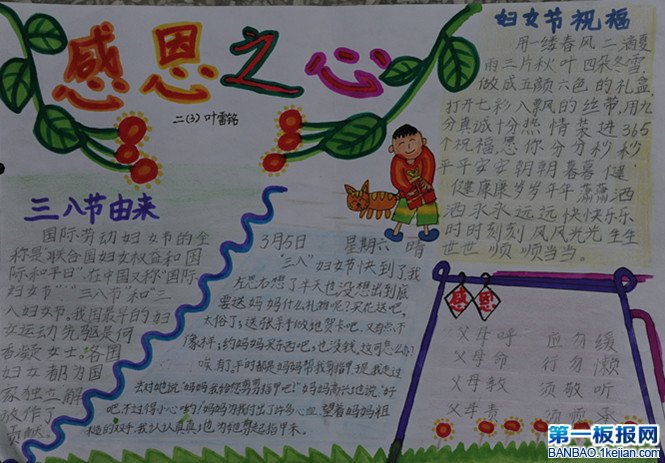 感恩之心
二(3) 叶雷铭
三八节由来
国际劳动妇女节的全
称是"联合国妇女权益和国
际和平日"。在中国又称"国际
妇女节""三八节"和"三
八妇女节。我国最早的妇
女运动先驱是何
香凝女士。各国
妇女都为国
家独立解
放作了
贡献。
3月5日 星期六 晴
"三八"妇女节快到了我
左思右想了半天也没想出到底
要送妈妈什么礼物呢?买花送吧,
太俗了;送张亲手做地贺卡吧,又有点不
像样;约妈妈买东西吧,也没钱,这可怎么办?
唉,有了,平时都是妈妈帮我剪指甲,现我走过
去对她说:"妈妈我给您剪剪指甲吧!"妈妈高兴地说:"好
吧,不过得小心哟!妈妈为我付出了许多心血,望着妈妈粗
糙的双手,我认认真真地为她剪起指甲来。
妇女节祝福
用一缕春风二滴夏
雨三片秋叶四朵冬雪,
做成五颜六色的礼盒,
打开七彩八飘风的丝带,用九
分真诚十分热情装进365
个祝福,愿你分分秒秒
平平安安朝朝暮暮健
健康康岁岁年年潇潇洒
洒永永远远快快乐乐
时时刻刻风风光光生生
世世顺顺当当。
感恩
父母呼 应勿缓
父母命 行勿懒
父母教 须敬听
父母责 须顺承
第一板报网
BANBAO.1kejian.com